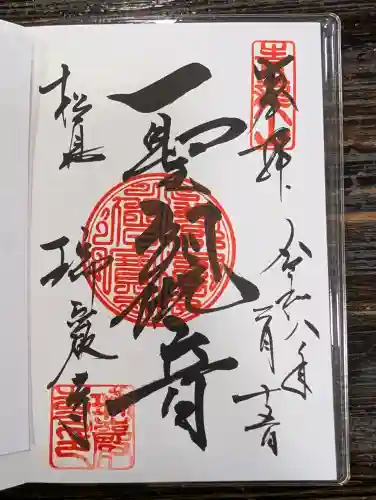 奉拝
令和八年
二月十五日
聖観音
松島
瑞巌寺